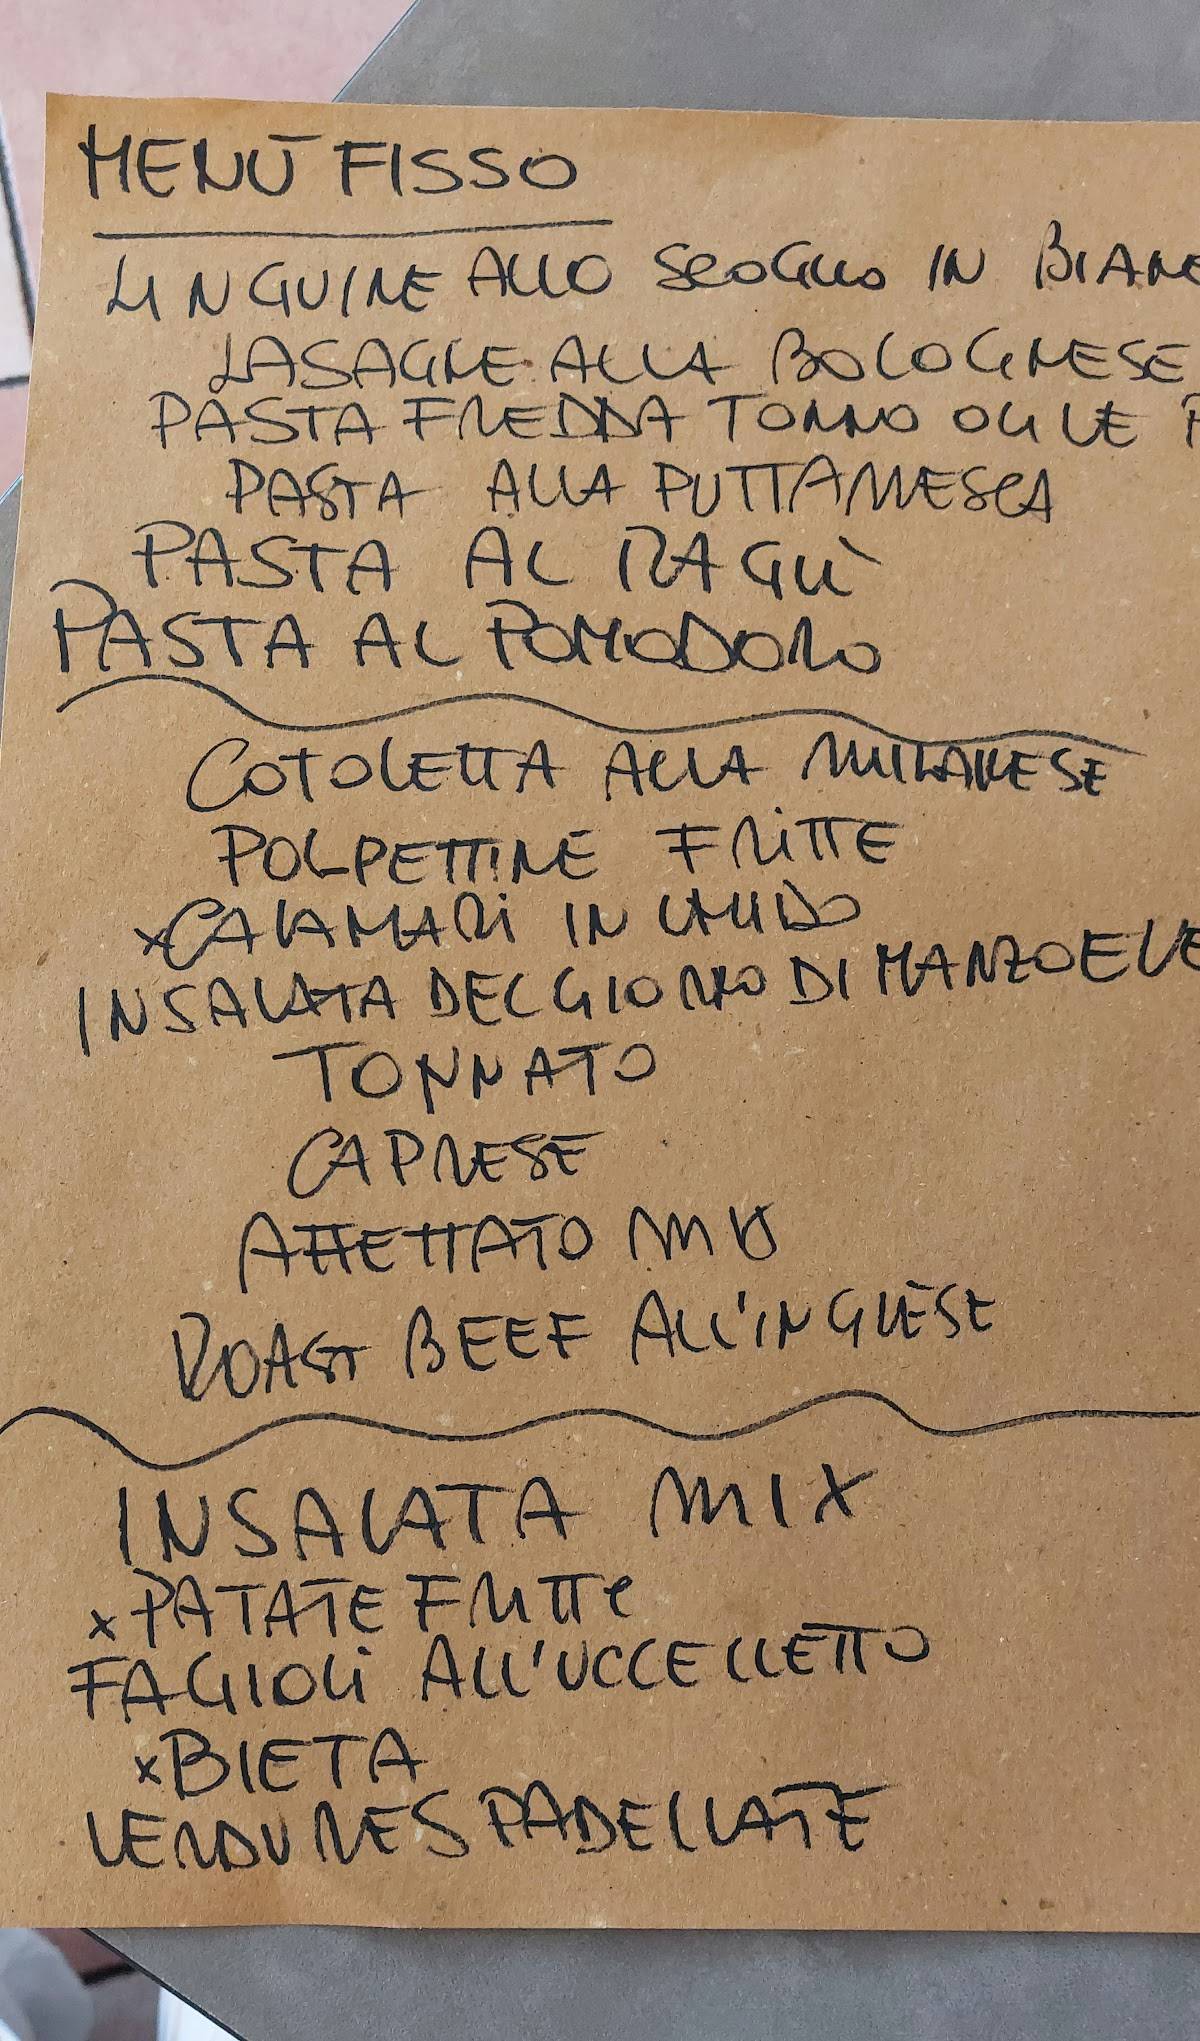 MENÙ FISSO
LINGUINE ALLO SCOGLIO IN BIANC
LASAGNE ALLA BOLOGNESE
PASTA FREDDA TONNO OLIVE P
PASTA ALLA PUTTANESCA
PASTA AL RAGÙ
PASTA AL POMODORO
COTOLETTA ALLA MILANESE
POLPETTINE FRITTE
xCALAMARI IN UMIDO
INSALATA DEL GIORNO DI MANZO E VE
TONNATO
CAPRESE
AFFETTATO MIX
ROAST BEEF ALL'INGLESE
INSALATA MIX
xPATATE FRITTE
FAGIOLI ALL'UCCELLETTO
xBIETA
VERDURE SPADELLATE